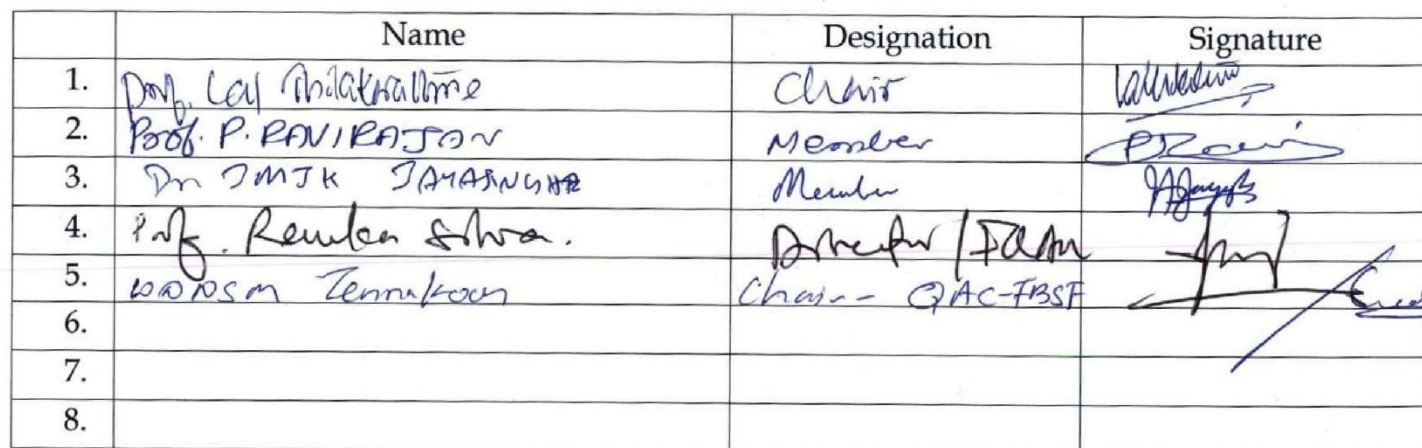 Name Designation Signature
1. Prof. Lal Thilakrathne Chair
2. Prof. P. RAVIRAJAN Member
3. Dr JMJK JAYASINGHE Member
4. Prof. Renuka Silva. Director /
5. Tennakoon Chair - QAC-FBSF
6.
7.
8.